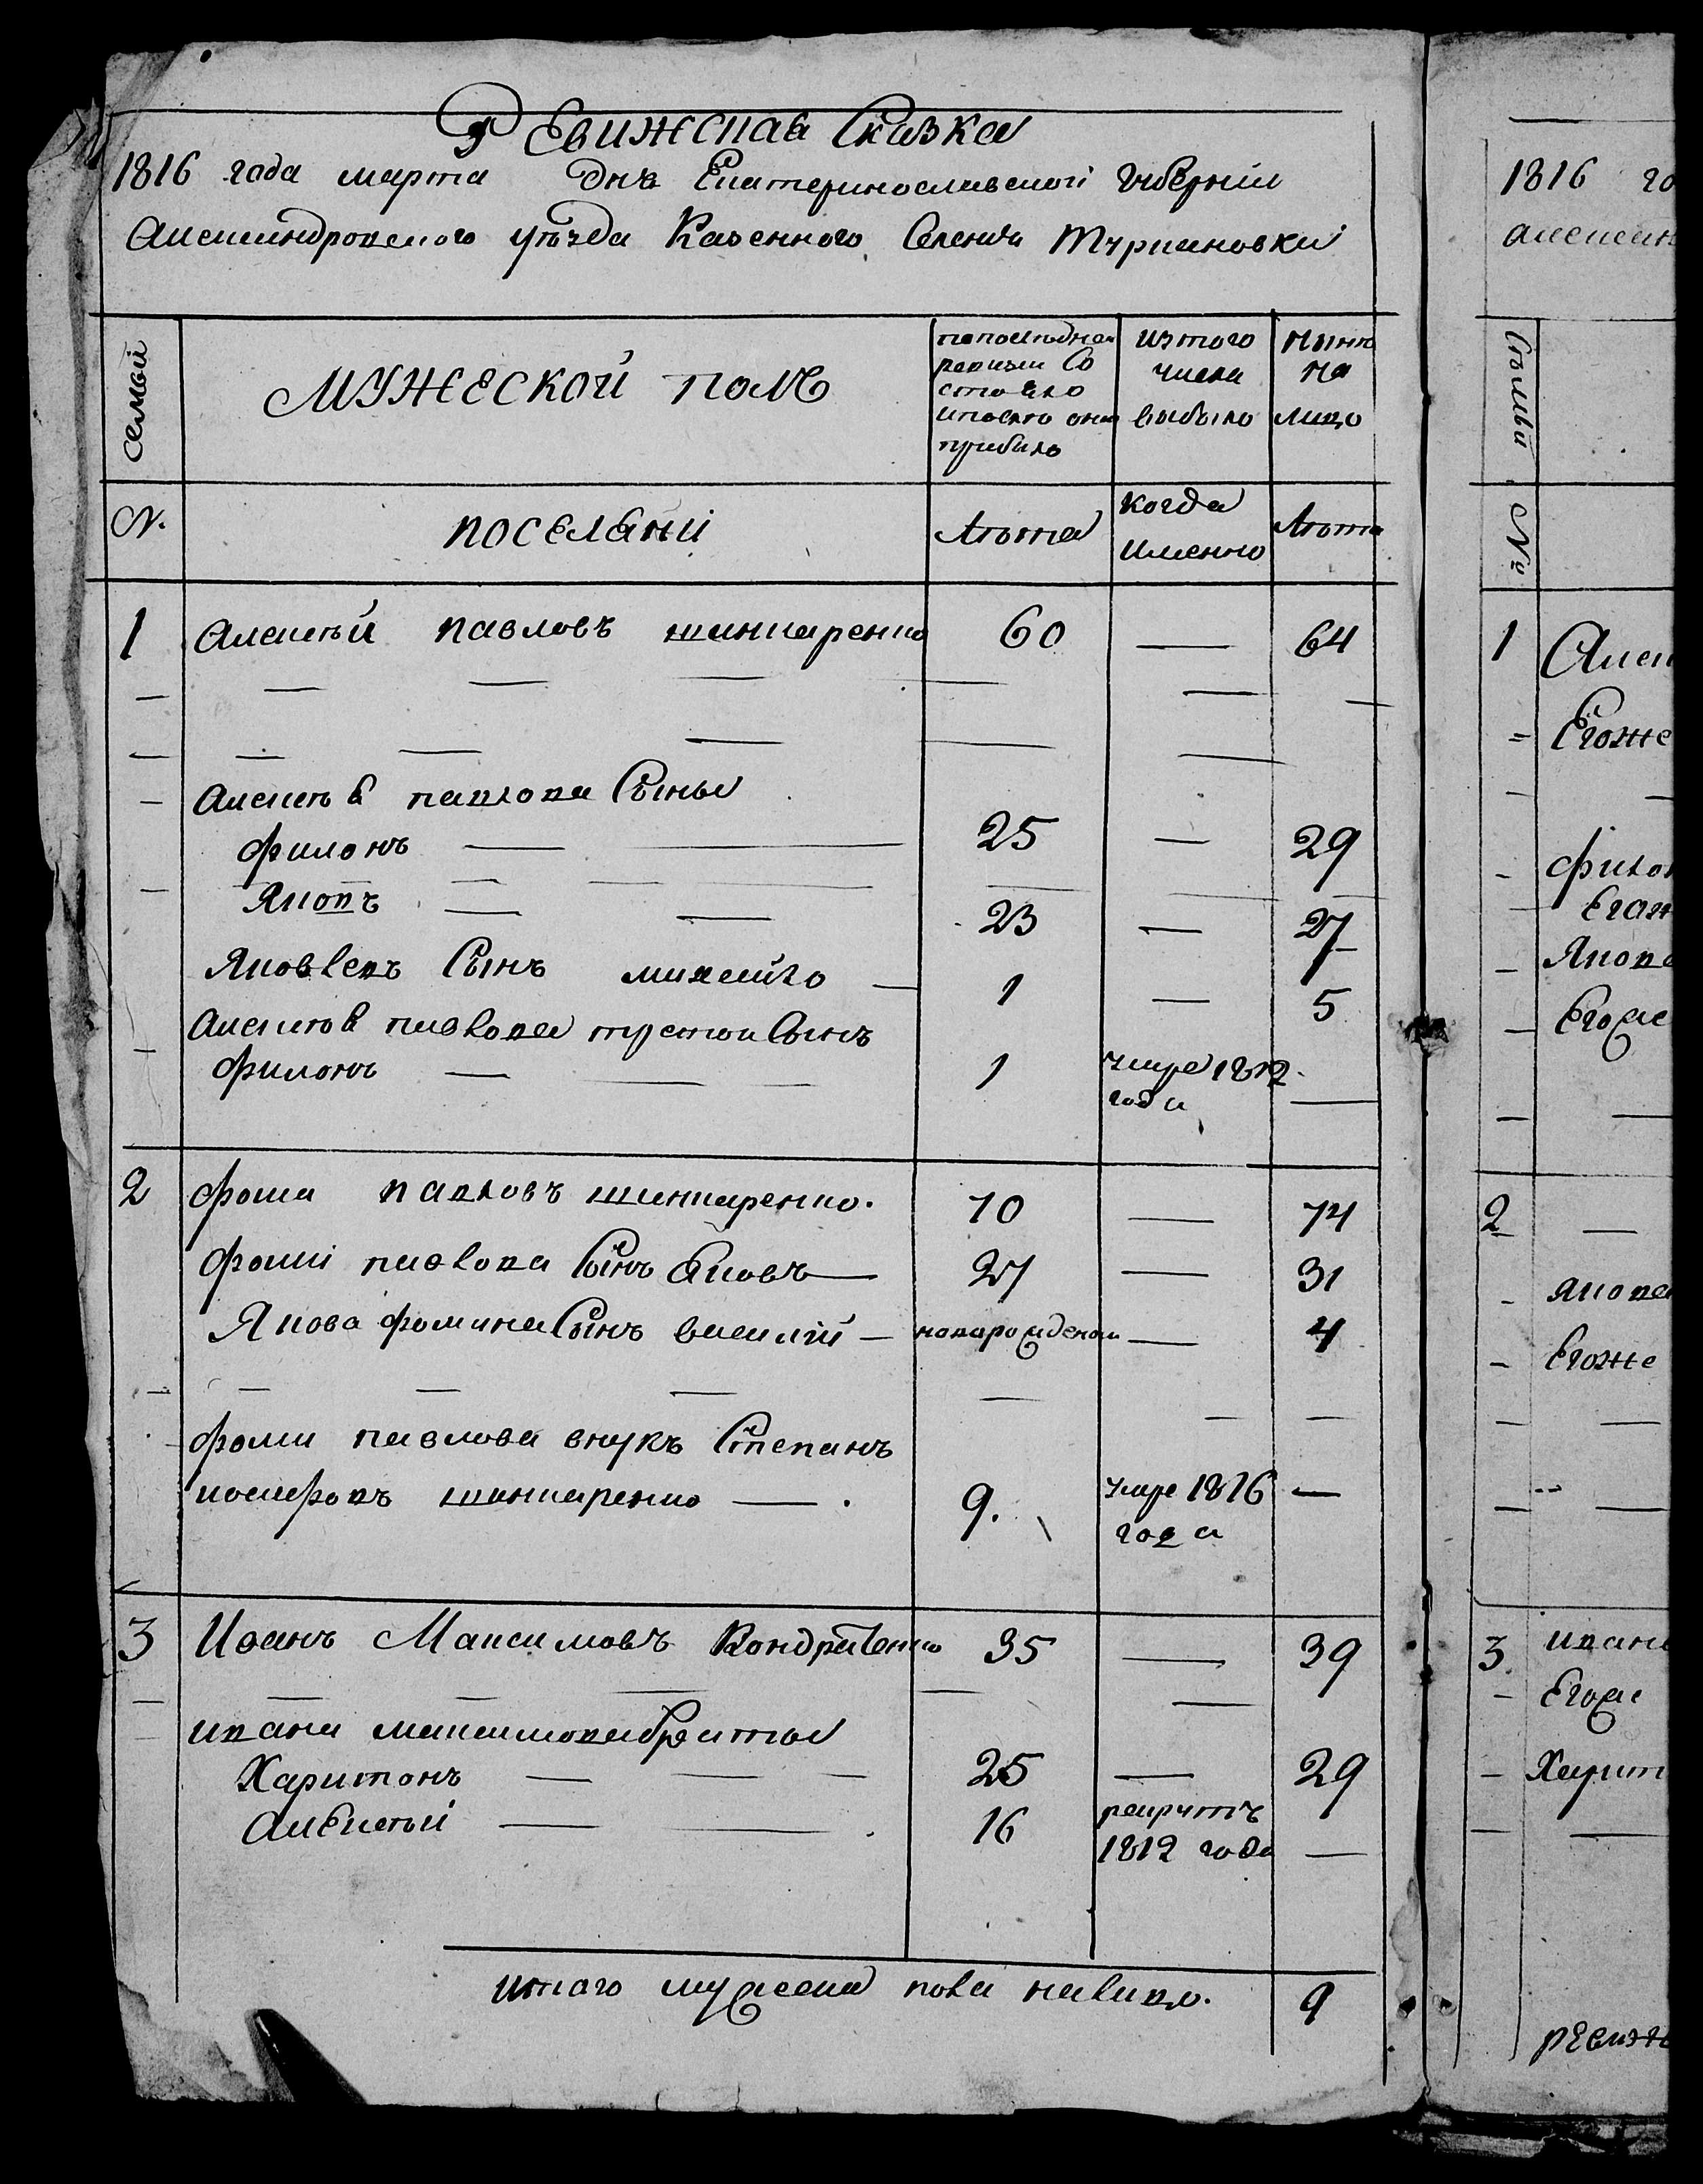 Ревижская Сказка
1816 года марта дня Екатеринославской губернии
Александровского уѣзда Казенного Селения Туркеновки
семьи
мужеской полъ
попоследней
ревизии Со
стояло
и после оной
прибыло
из того
числа
выбыло
ныне
на
лицо
№.
поселяни
лѣта
когда
именно
лѣта
1 Алексѣй павловъ шинкаренко 60 — 64
Алексѣя павлова Сыны
филонъ 25 — 29
Яковъ 23 — 27
Яковлевъ Сынъ михайло 1 — 5
Алексѣя павлова третой Сынъ
филонъ 1 умре 1812
года
2 фома павловъ шинкаренко. 70 — 74
фоми павлова Сынъ Яковъ 27 — 31
Якова фомина Сынъ василий новорожденой — 4
фоми павлова внукъ Степанъ
иосифовъ шинкаренко 9. умре 1816 —
года
3 Иванъ Максимовъ Кондратенко 35 — 39
ивана максимова братья
Харитонъ 25 — 29
Алексѣй 16 рекрутъ
1812 года —
итого мужеска пола налицо. 9
1816 го
алексан
Семьи
№
1 Алек
Егоже
филон
Егож
Якова
Егоже
2
якова
Егоже
3 ивана
Егоже
Харит
ревиж